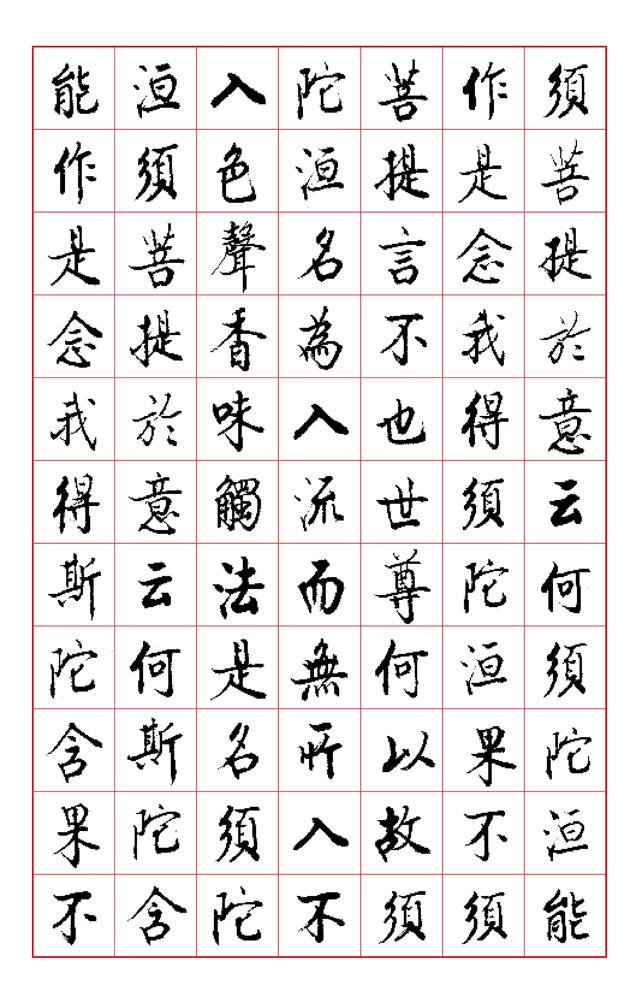 須菩提於意云何須陀洹能
作是念我得須陀洹果不須
菩提言不也世尊何以故須
陀洹名為入流而無所入不
入色聲香味觸法是名須陀
洹須菩提於意云何斯陀含
能作是念我得斯陀含果不